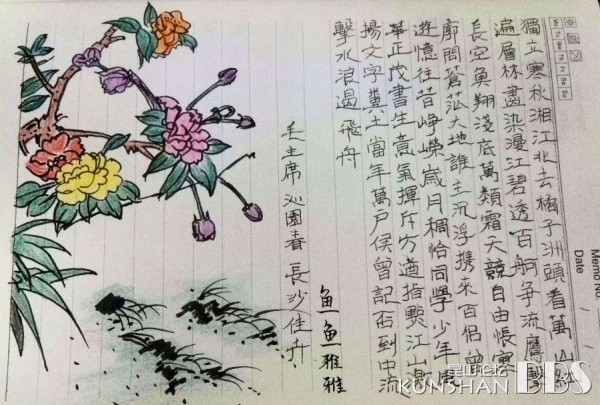 Memo No.
Date
獨立寒秋湘江北去橘子洲頭看萬山紅
遍層林盡染漫江碧透百舸争流鷹擊
長空魚翔淺底萬類霜天競自由悵寥
廓問蒼茫大地誰主沉浮携來百侣曾
遊憶往昔崢嶸歲月稠恰同學少年風
華正茂書生意氣揮斥方遒指點江山激
揚文字糞土當年萬戶侯曾記否到中流
擊水浪遏飛舟
毛主席沁園春長沙佳
魚魚雅雅
昆山论坛
KUNSHAN BBS